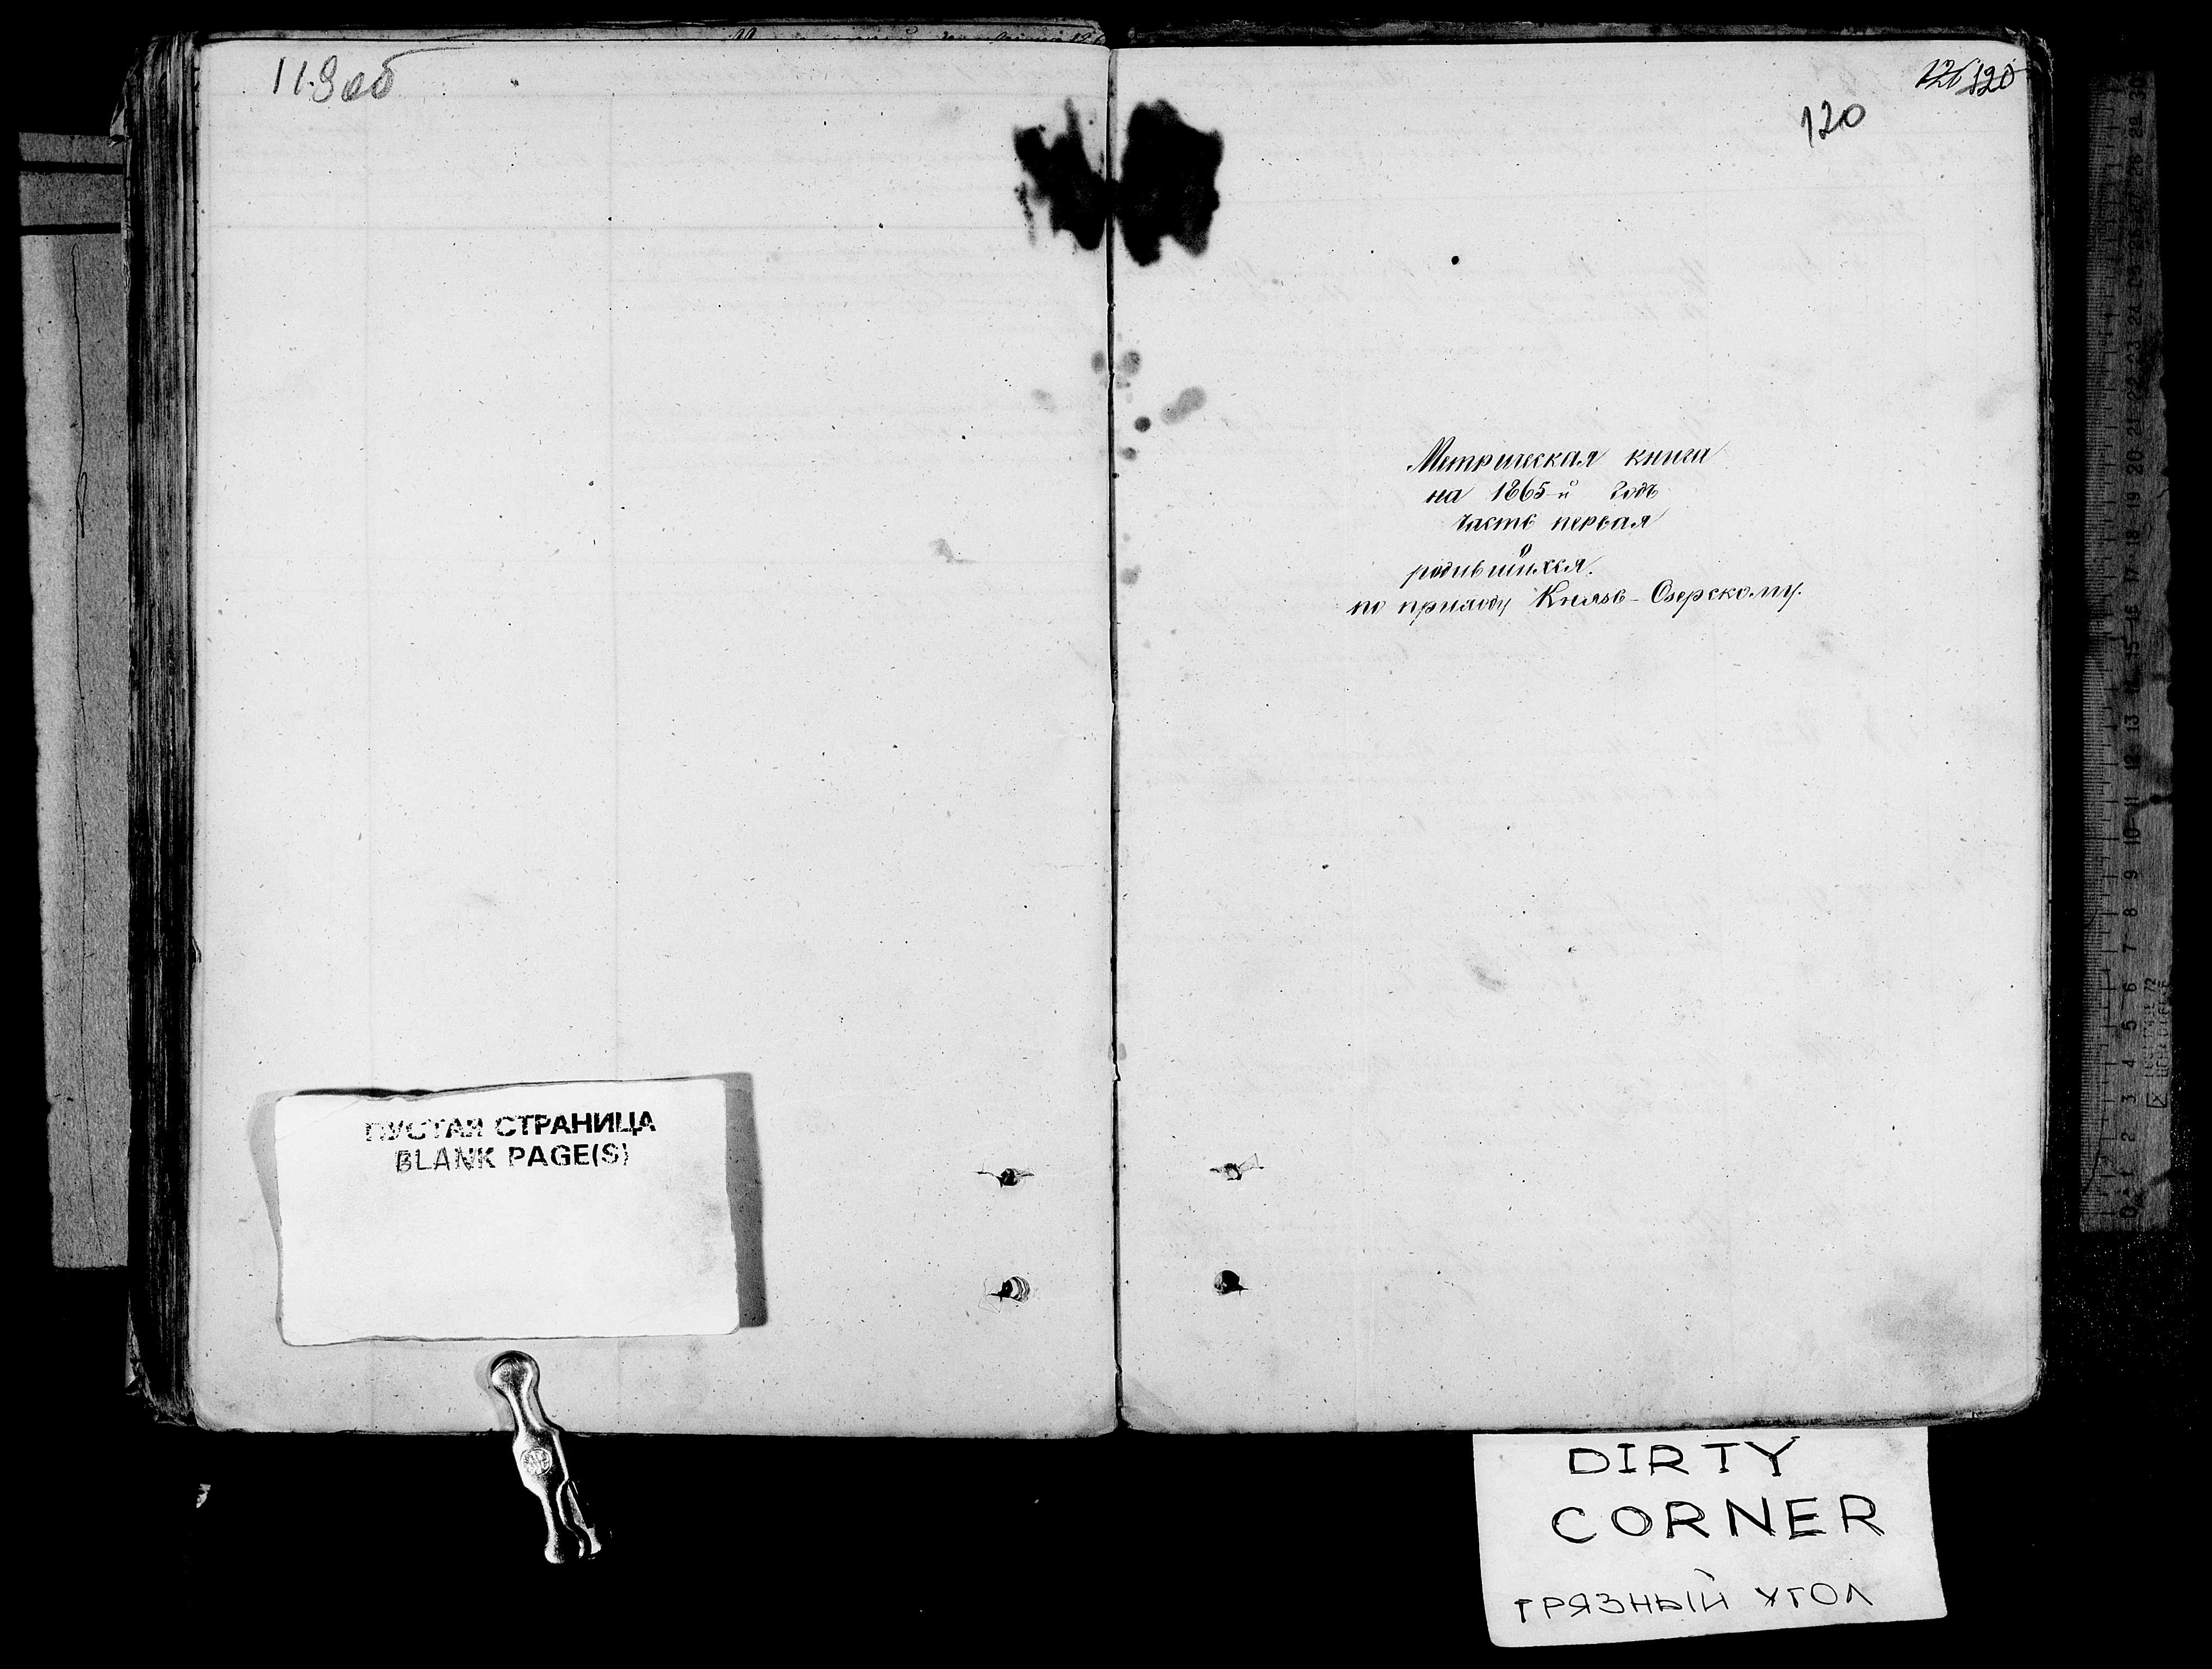 119об
120
120
Метрическая книга
на 1865-й годъ
часть первая
о
родившихся.
по приходу Князь-Озерскому.
ПУСТАЯ СТРАНИЦА
BLANK PAGE(S)
DIRTY
CORNER
ГРЯЗНЫЙ УГОЛ